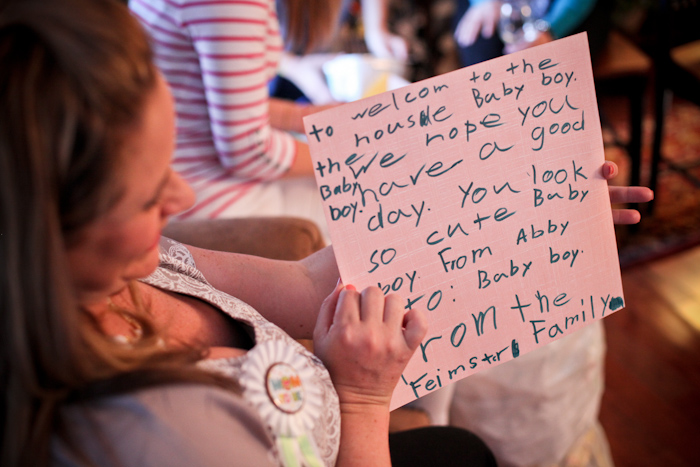 to welcom to the
house Baby boy.
the We hope you
Baby have a good
boy. day. You look
so cute Baby
boy. From Abby
to: Baby boy.
From the
Feimstr Family